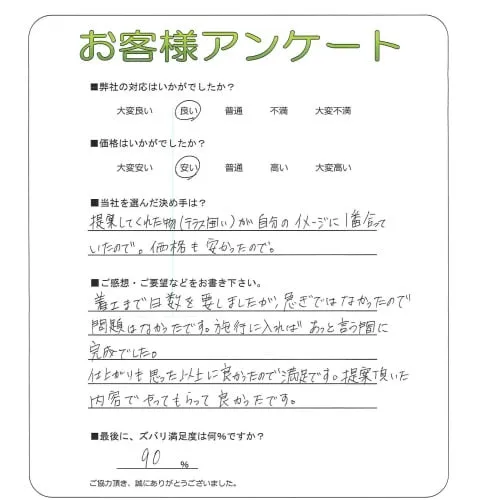 お客様アンケート
■弊社の対応はいかがでしたか？
大変良い 良い 普通 不満 大変不満
■価格はいかがでしたか？
大変安い 安い 普通 高い 大変高い
■当社を選んだ決め手は？
提案してくれた物(テラス囲い)が自分のイメージに1番合って
いたので。価格も安かったので。
■ご感想・ご要望などをお書き下さい。
着工まで日数を要しましたが、急ぎではなかったので
問題はなかったです。施行に入ればあっと言う間に
完成でした。
仕上がりも思った以上に良かったので満足です。提案頂いた
内容でやってもらって良かったです。
■最後に、ズバリ満足度は何%ですか？
90 %
ご協力頂き、誠にありがとうございました。